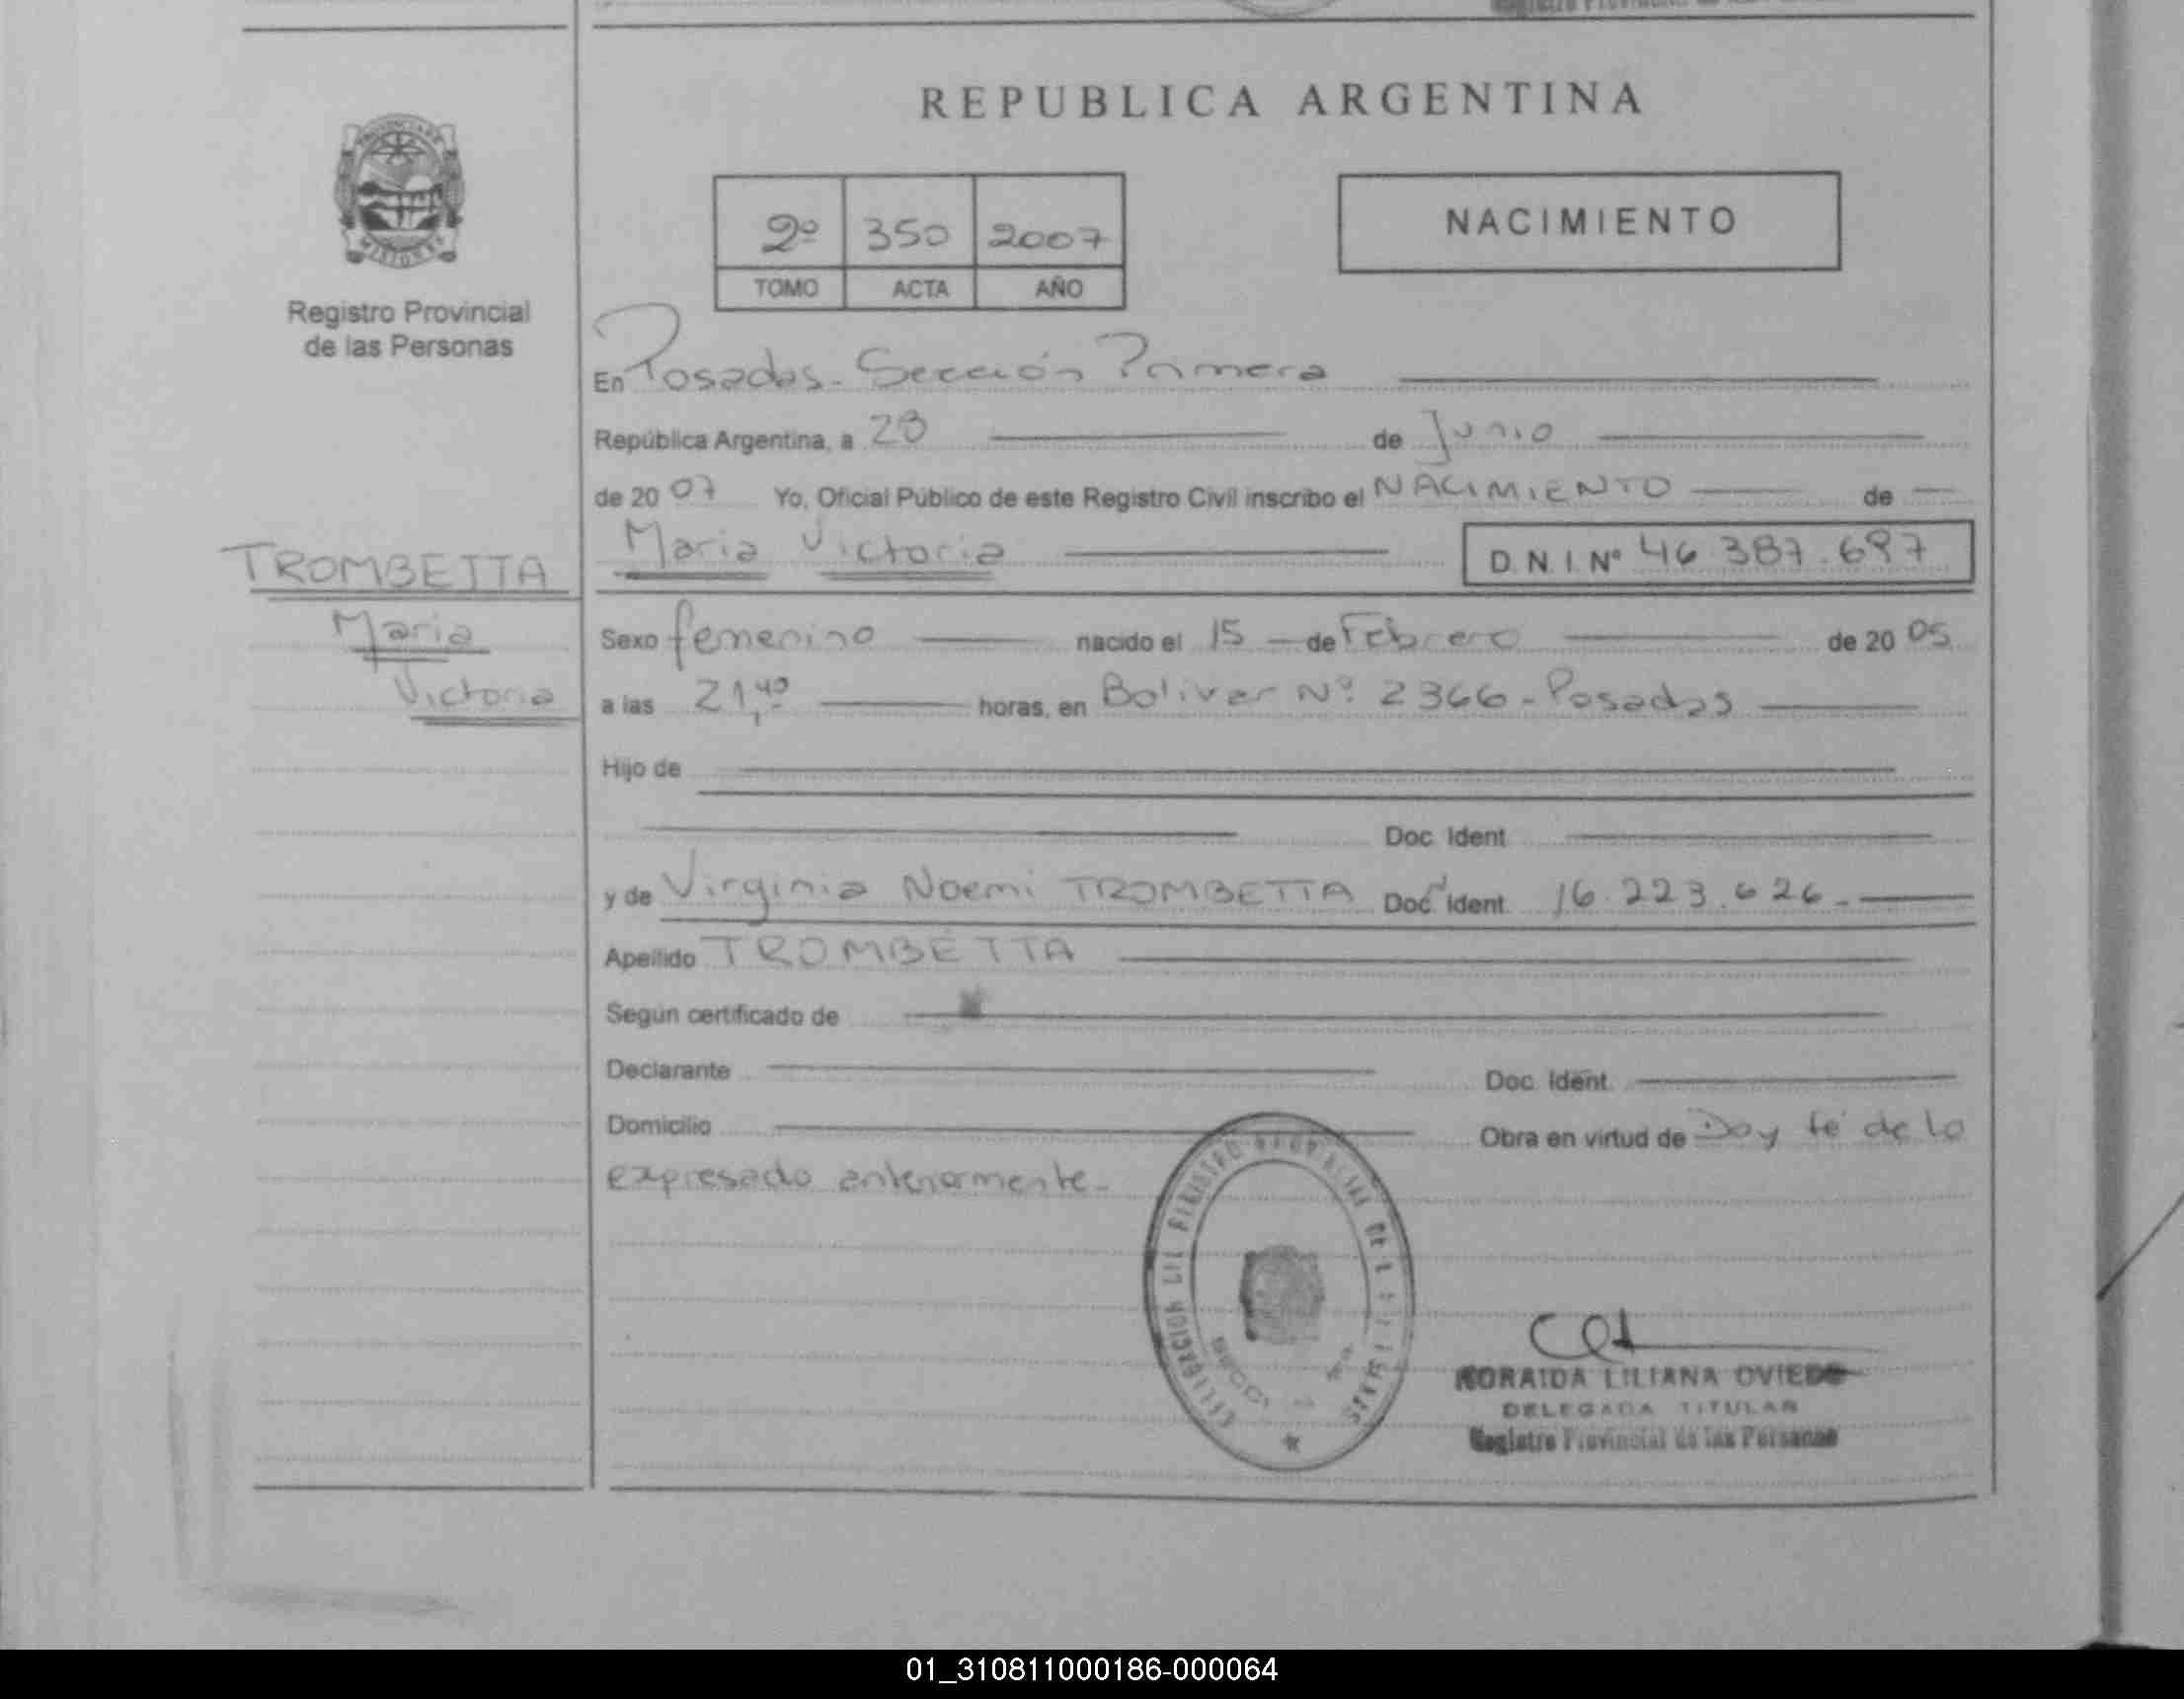 REPUBLICA ARGENTINA
2º 350 2007
TOMO ACTA AÑO
NACIMIENTO
Registro Provincial
de las Personas
En Posadas - Sección Primera
República Argentina, a 28 de Junio
de 2007 Yo, Oficial Público de este Registro Civil inscribo el NACIMIENTO de
Maria Victoria D.N.I. Nº 46.387.697
TROMBETTA
Maria
Victoria
Sexo femenino nacido el 15 de Febrero de 2005
a las 21,40 horas, en Bolivar Nº 2366 - Posadas
Hijo de
Doc. Ident.
y de Virginia Noemi TROMBETTA Doc. Ident. 16.223.626.-
Apellido TROMBETTA
Según certificado de
Declarante Doc. Ident.
Domicilio Obra en virtud de Doy fé de lo
expresado anteriormente-
REGISTRO PROVINCIAL DE
ZORAIDA LILIANA OVIEDO
DELEGADA TITULAR
Registro Provincial de las Personas
01_310811000186-000064